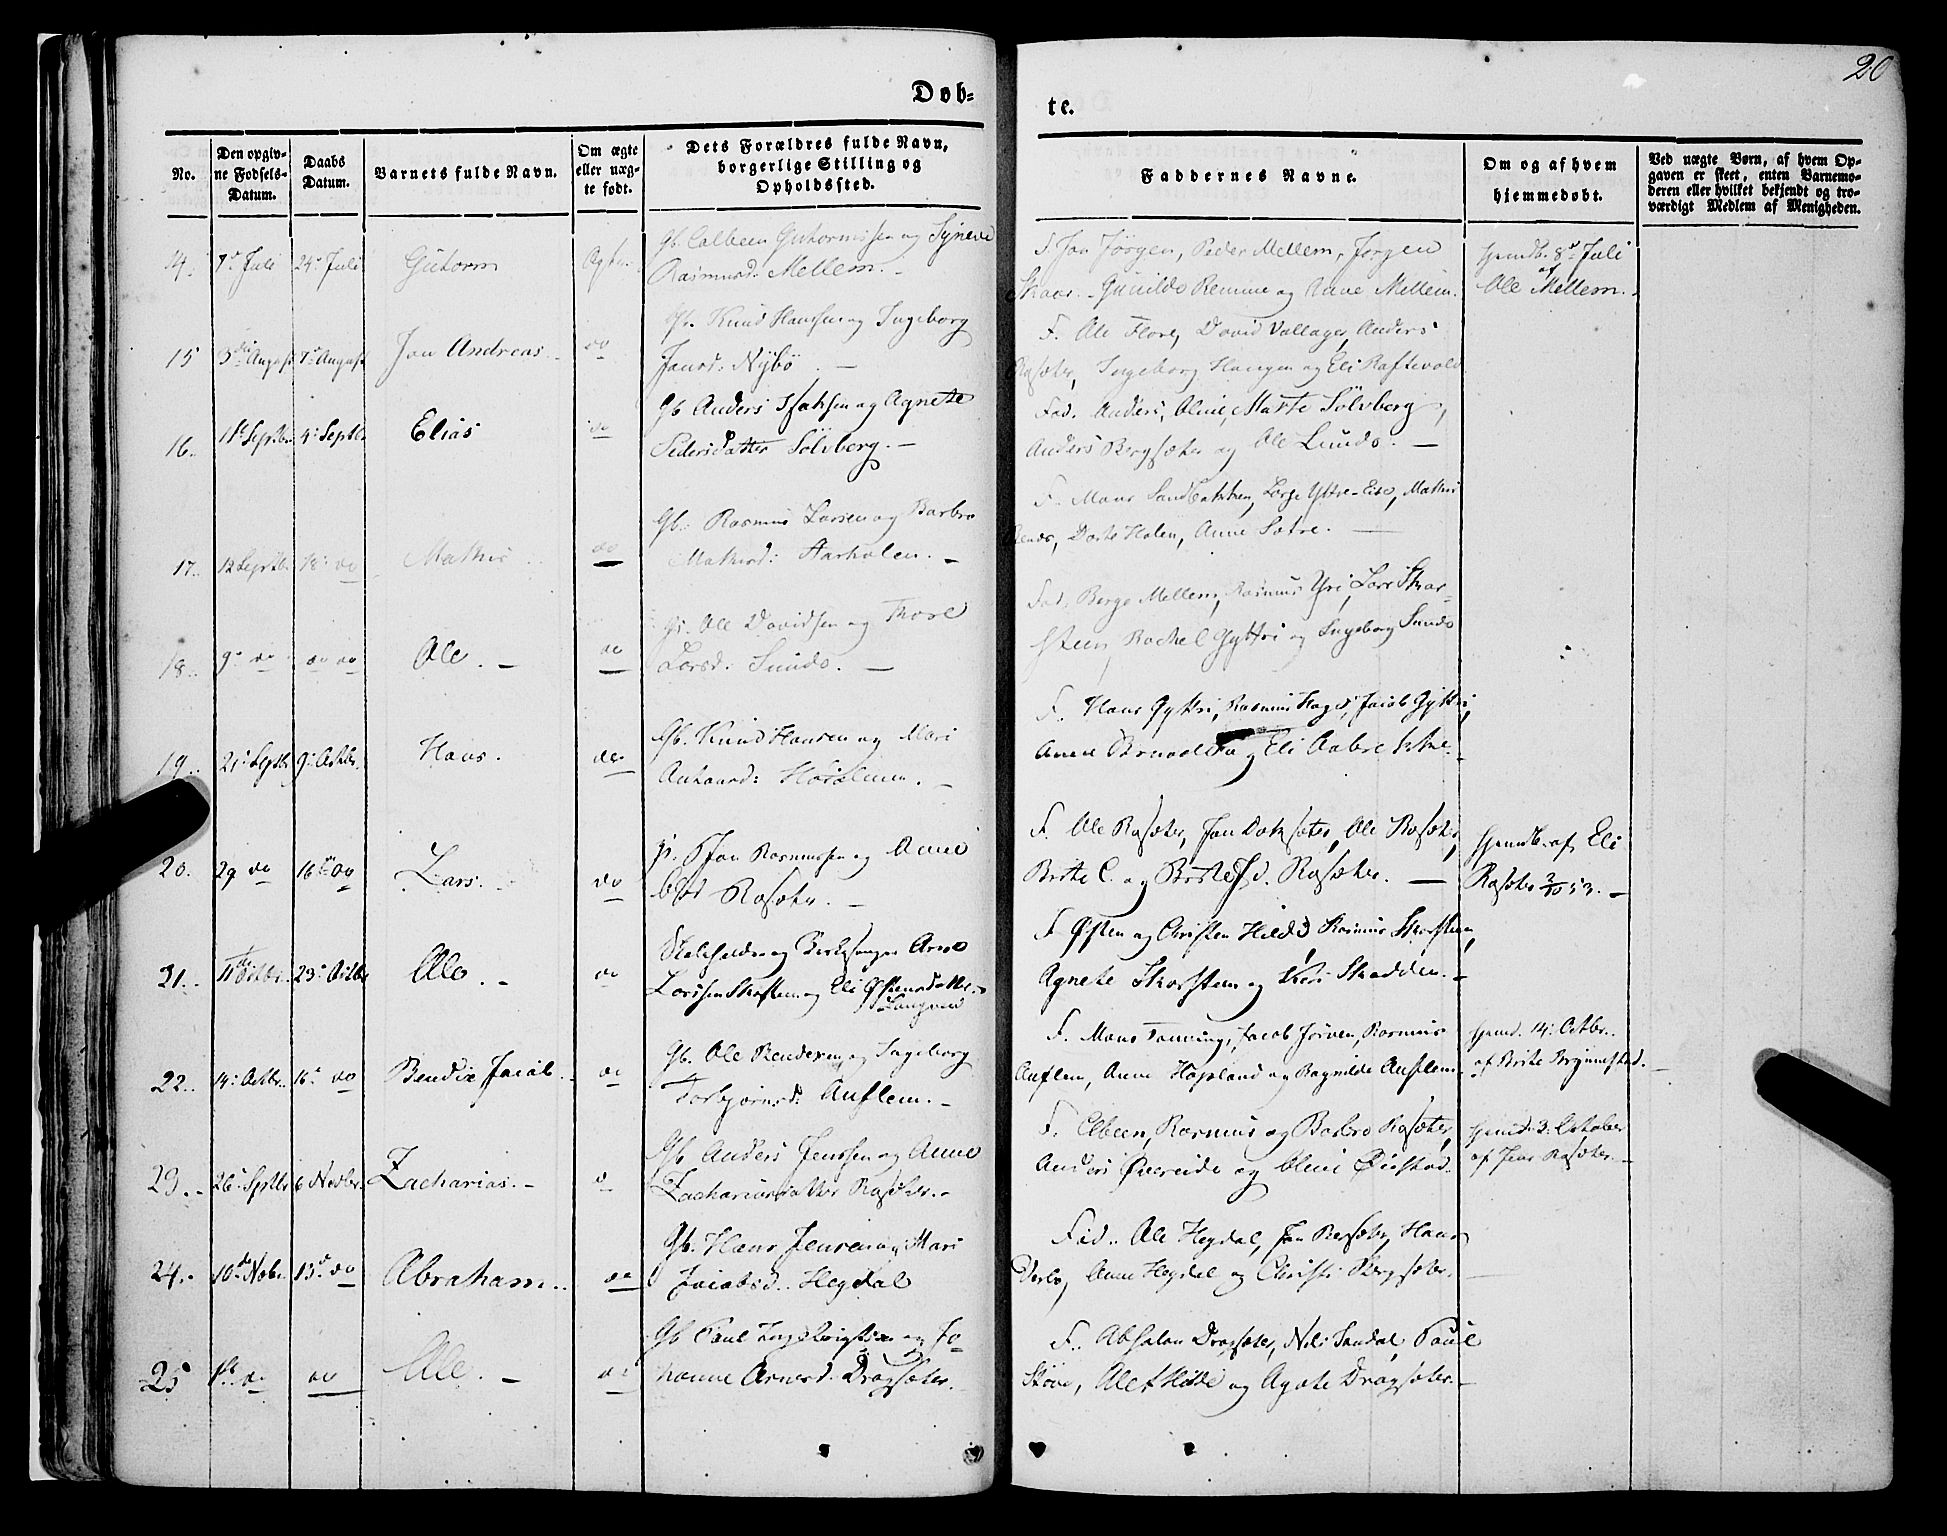 20
Døb=
te.
No.
Den opgiv-
ne Fødsels-
Datum.
Daabs
Datum.
Barnets fulde Navn.
Om ægte
eller uæg-
te født.
Dets Forældres fulde Navn,
borgerlige Stilling og
Opholdssted.
Faddernes Navne.
Om og af hvem
hjemmedøbt.
Ved uægte Børn, af hvem Op-
gaven er skeet, enten Barnemo-
deren eller hvilket bekjendt og tro-
værdigt Medlem af Menigheden.
14. 7de Juli 24de Juli Guttorm
Gb. Colbeen Guttormssen og Syneve
Rasmusd: Mellem. -
F Jon Jörgen, Peder Mellem, Jørgen
Skaar. Gunilde Remme og Anne Mellem.
Hjemdb. 8de Juli
af
Ole Mellem.
15 3die August 7de August Jon Andreas. do
Gb. Knud Hanssen og Ingeborg
Jonsd: Nÿbö. -
F. Ole Flore, David Vallager, Anders
Rasæter, Ingeborg Haugen og Eli Raftevold
16. 1ste Septbr. 4de Septbr. Elias do
Gb Anders Isaksen og Agnete
Pedersdatter Sölvberg. -
Fad. Anders, Oline, Marte Sölvberg,
Anders Bergsæter og Ole Lunde. -
17. 12 Septbr. 18de do Mathis do
Gb. Rasmus Larsen og Barbro
Mathisd: Aarholen. -
F. Mons Sandbakken, Mathis
Dorte Holen, Anne Sætre. -
18. 9de do do do Ole. - do
Gb. Ole Davidsen og Thore
Larsd. Sunde. -
Fad. Børge Mellem, Rasmus Yri, Lars Skar-
steen, Rachel Gyttri og Ingeborg Sunde
19. 21de Septbr 9de Octbr. Hans. do
Gb. Knud Hansen og Mari
F. Hans Gyttri, Rasmus Hage, Jacob Gyttri,
og Eli Aabrekke.
20. 29 do 16de do Lars. do
Gb. Jon Rasmussen og Anne
Rasæter. -
F. Ole Rasæter, Jon Doksæter, Ole Rasæter,
Brite C. og Brite Jd. Rasæter. -
Hjemdb. af Eli
Rasæter 2/10 53. -
21. 11te Octbr. 23de Octbr Ole. - do
Skoleholder og Kirkesanger Arne
Larssen Skarsteen og Eli Østensdatter
Langved
F Østen og Christen Hilde Rasmus Skarsteen,
Agnete Skarsteen og Kari Skadden. -
22. 14de Octbr. 16de do Bendix Jacob. do
Gb. Ole Bendixen og Ingeborg
Torbjørnsd: Auflem. -
F. Mons Tonning, Jacob Rasmus
Auflem, Anne Hopland og Ragnilde Auflem.
Hjemd. 14de Octbr.
af Brite Brynnestad. -
23. - 26de Septbr 6 Novbr. Zacharias. - do
Gb Anders Jenssen og Anne
Zachariasdatter Rasæter. -
F. Elbeen, Rasmus og Barbro Rasæter,
Anders Øvereide og Oline Øvrstad.
Hjemd: 3die October
af Jens Rasæter. -
24. - 10de Novbr. 13de do Abraham. do
Gb. Hans Jensen og Mari
Jacobsd. Hegdal
Fad. Ole Hegdal, Jon Bersæter, Hans
Anne Hegdal og Christi Bergsæter.
25 1ste do do Ole. - do
Gb Paul Ingebrigtsen og Jo-
hanne Arnesd. Dragsæter.
F. Absalon Dragsæter, Nils Sandal, Paul
Støve, Olet Hilde og Agate Dragsæter. -